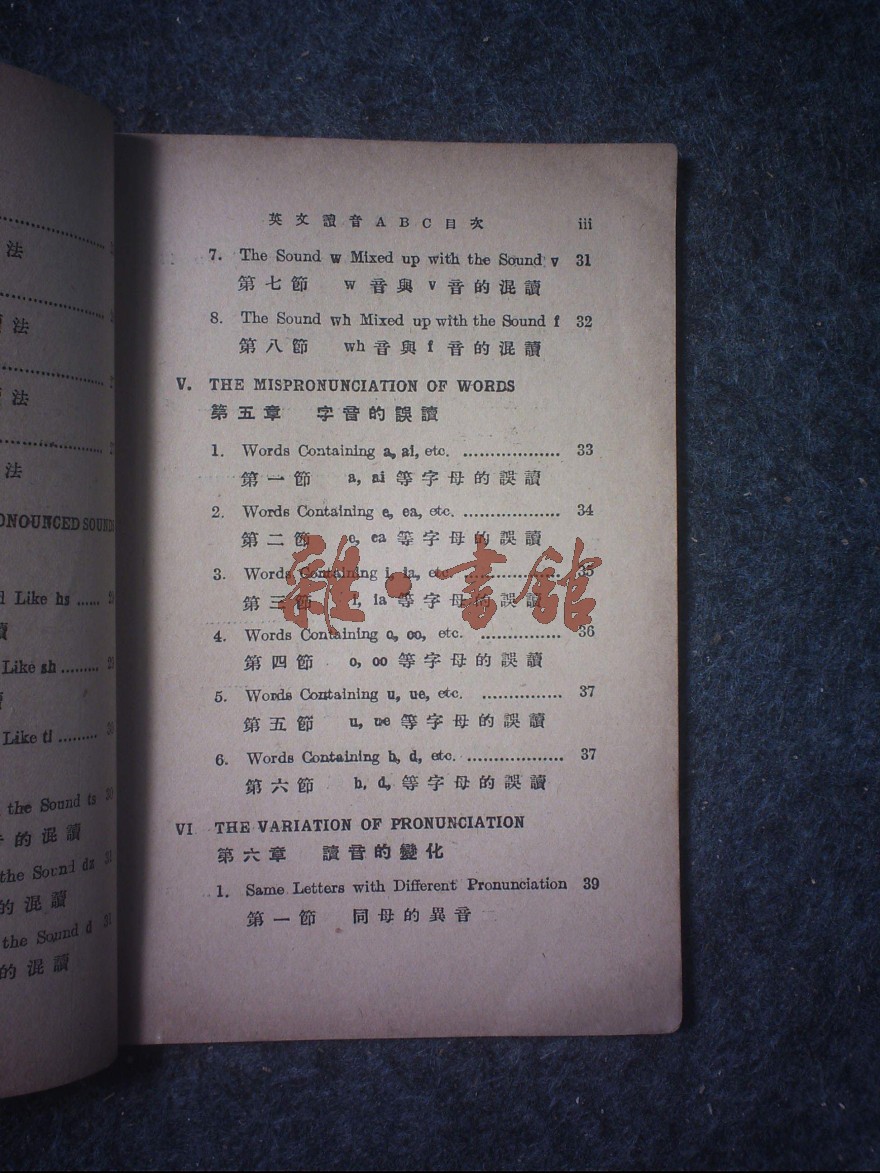 法
法
法
法
ONOUNCED SOUNDS
Like hs ......
讀
Like sh .........
Like tl .........
the Sound ts 30
音 的 混 讀
the Sound dz 31
的 混 讀
the Sound d 31
的 混 讀
英 文 讀 音 A B C 目 次 iii
7. The Sound w Mixed up with the Sound v 31
第 七 節 w 音 與 v 音 的 混 讀
8. The Sound wh Mixed up with the Sound f 32
第 八 節 wh 音 與 f 音 的 混 讀
V. THE MISPRONUNCIATION OF WORDS
第 五 章 字 音 的 誤 讀
1. Words Containing a, ai, etc. .................. 33
第 一 節 a, ai 等 字 母 的 誤 讀
2. Words Containing e, ea, etc. .................. 34
第 二 節 e, ea 等 字 母 的 誤 讀
3. Words Containing i, ia, etc. .................. 35
第 三 節 i, ia 等 字 母 的 誤 讀
4. Words Containing o, oo, etc. ............... 36
第 四 節 o, oo 等 字 母 的 誤 讀
5. Words Containing u, ue, etc. ............... 37
第 五 節 u, ue 等 字 母 的 誤 讀
6. Words Containing b, d, etc. .................. 37
第 六 節 b, d, 等 字 母 的 誤 讀
VI THE VARIATION OF PRONUNCIATION
第 六 章 讀 音 的 變 化
1. Same Letters with Different Pronunciation 39
第 一 節 同 母 的 異 音
雜·書館